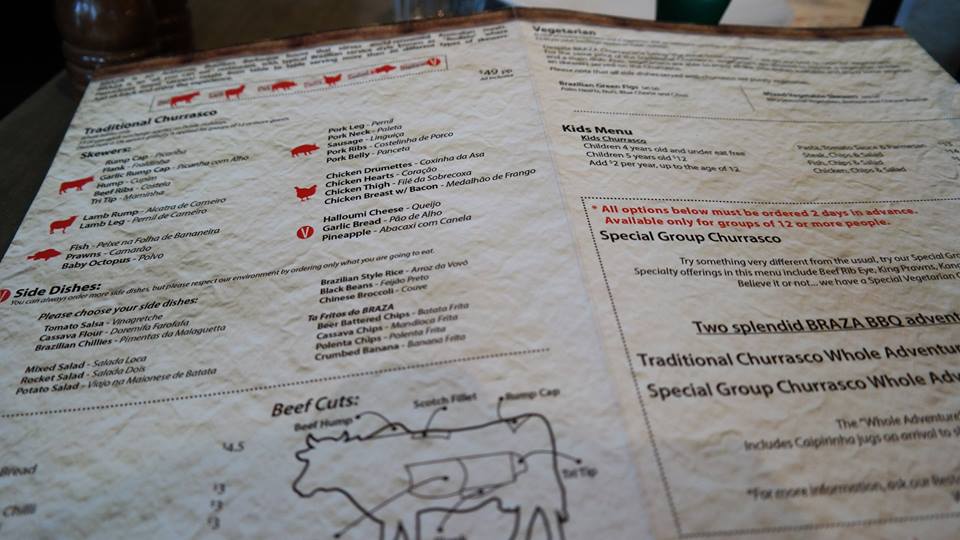 $49 pp
All inclusive
Traditional Churrasco
Skewers:
Rump Cap - Picanha
Flank - Fraldinha
Garlic Rump Cap - Picanha com Alho
Hump - Cupim
Beef Ribs - Costela
Tri Tip - Maminha
Lamb Rump - Alcatra de Carneiro
Lamb Leg - Pernil de Carneiro
Fish - Peixe na Folha de Bananeira
Prawns - Camarão
Baby Octopus - Polvo
Pork Leg - Pernil
Pork Neck - Paleta
Sausage - Linguiça
Pork Ribs - Costelinha de Porco
Pork Belly - Panceta
Chicken Drumettes - Coxinha da Asa
Chicken Hearts - Coração
Chicken Thigh - Filé da Sobrecoxa
Chicken Breast w/ Bacon - Medalhão de Frango
V
Halloumi Cheese - Queijo
Garlic Bread - Pão de Alho
Pineapple - Abacaxi com Canela
Side Dishes:
You can always order more side dishes, but please respect our environment by ordering only what you are going to eat.
Please choose your side dishes:
Tomato Salsa - Vinagretche
Cassava Flour - Doremifa Farofafa
Brazilian Chillies - Pimentas da Malaguetta
Mixed Salad - Salada Loca
Rocket Salad - Salada Dois
Potato Salad - Viajo na Maionese de Batata
Brazilian Style Rice - Arroz da Vovó
Black Beans - Feijão Preto
Chinese Broccoli - Couve
Ta Fritos do BRAZA
Beer Battered Chips - Batata Frita
Cassava Chips - Mandioca Frita
Polenta Chips - Polenta Frita
Crumbed Banana - Banana Frita
Beef Cuts:
Beef Hump
Scotch Fillet
Rump Cap
Tri Tip
$4.5
Bread
$3
Chilli
$3
$3
Vegetarian
Please note that all side dishes served
Brazilian Green Figs
Palm Hearts, Nuts, Blue Cheese and Citrus
Kids Menu
Kids Churrasco
Children 4 years old and under eat free
Children 5 years old $12
Add $2 per year, up to the age of 12
Pasta, Tomato Sauce & Parmesan
Steak, Chips & Salad
Fish, Chips & Salad
Chicken, Chips & Salad
* All options below must be ordered 2 days in advance.
Available only for groups of 12 or more people.
Special Group Churrasco
Try something very different from the usual, try our Special Gro
Specialty offerings in this menu include Beef Rib Eye, King Prawns, Kan
Believe it or not... we have a Special Vegetarian
Two splendid BRAZA BBQ advent
Traditional Churrasco Whole Adventur
Special Group Churrasco Whole Adv
The "Whole Adventure"
Includes Caipirinha jugs on arrival to s
*For more information, ask our Rest